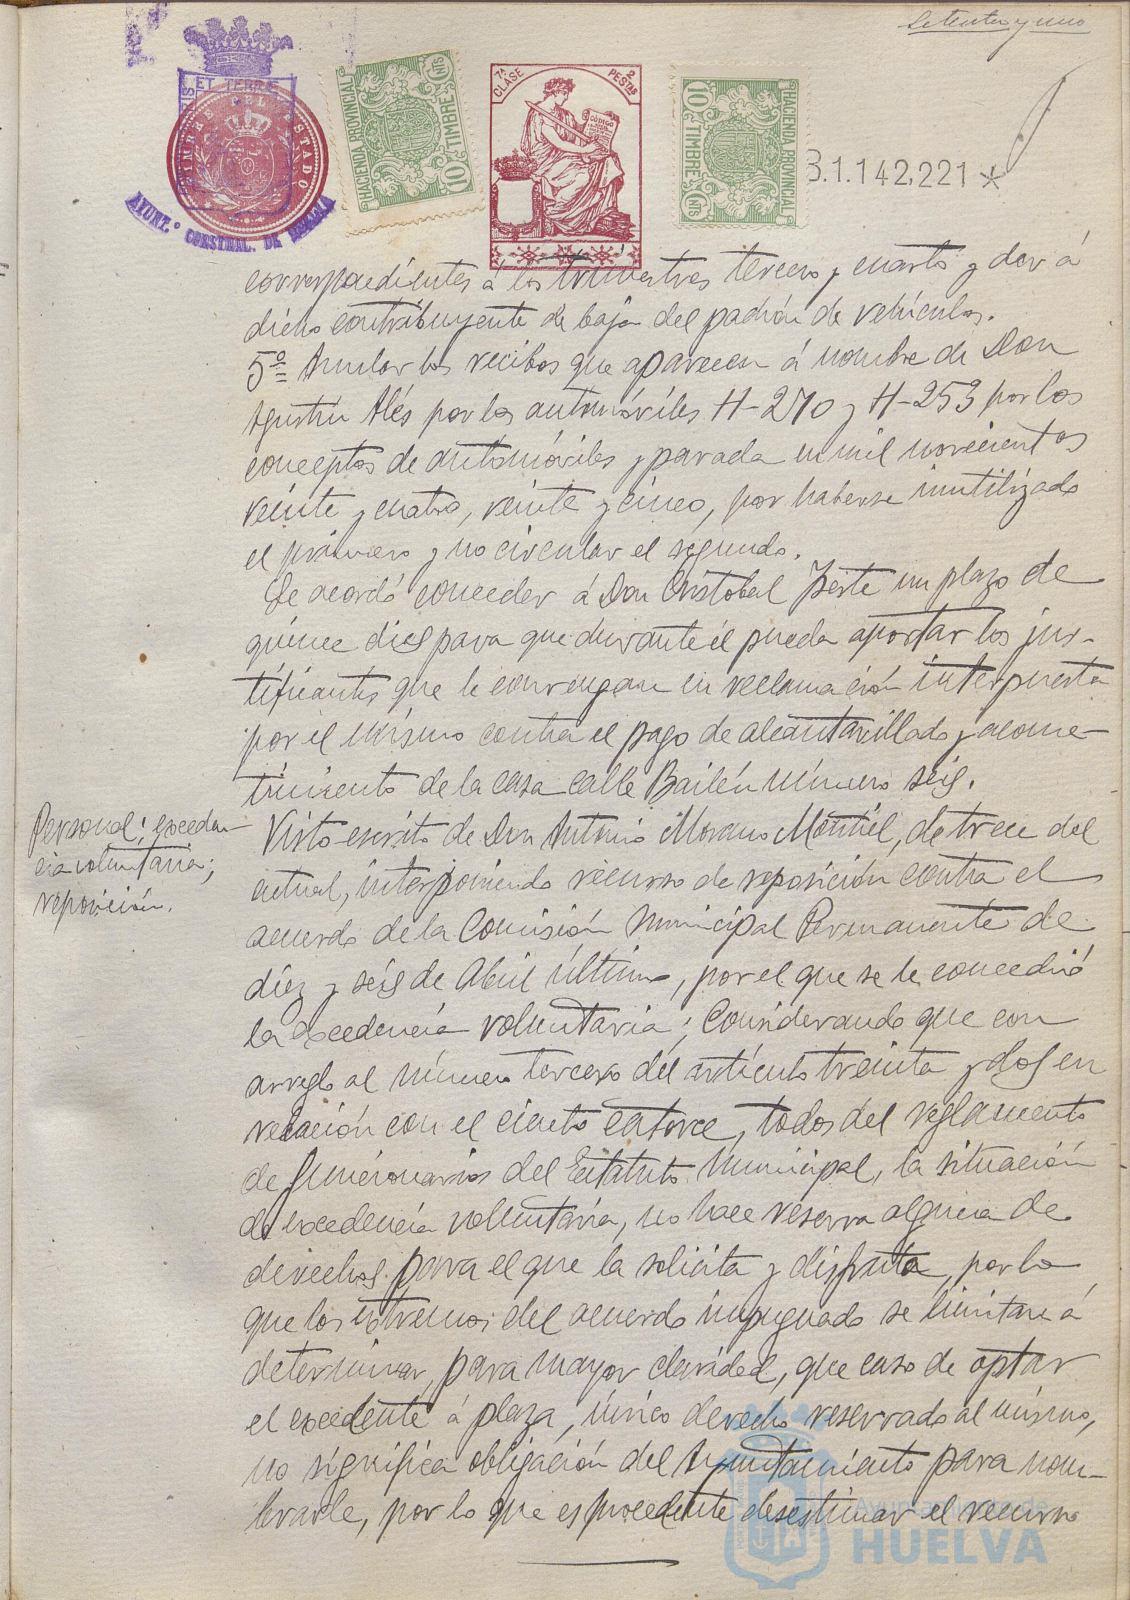 Setenta y uno
ET TERRE
TIMBRE DEL ESTADO
AYUNT.º CONSTNAL. DE HUELVA
HACIENDA PROVINCIAL
10 CTS TIMBRE
7ª CLASE 2 PESTAS
CÓDIGO
10 CTS TIMBRE
HACIENDA PROVINCIAL
B.1.142,221 *
correspondientes á los trimestres tercero y cuarto y dar á
dicho contribuyente de baja del padrón de vehículos.
5º= Anular los recibos que aparecen á nombre de Don
Agustín Alés por los automóviles H-270 y H-253 por los
conceptos de automóviles y parada en mil novecientos
veinte y cuatro, veinte y cinco, por haberse inutilizado
el primero y no circular el segundo.
Se acordó conceder á Don Cristobal un plazo de
quince dias para que durante él pueda aportar los jus-
tificantes que le convengan en reclamación interpuesta
por el mismo contra el pago de alcantarillado y acome-
timiento de la casa calle Bailén número seis.
Personal; exceden-
cia voluntaria;
reposición.
Visto escrito de Don Antonio Moreno Montiel, de trece del
actual, interponiendo recurso de reposición contra el
acuerdo de la Comisión Municipal Permanente de
diez y seis de Abril último, por el que se le concedió
la excedencia voluntaria; Considerando que con
arreglo al número tercero del artículo treinta y dos en
relación con el ciento catorce, todos del reglamento
de funcionarios del Estatuto Municipal, la situación
de excedencia voluntaria, no hace reserva alguna de
derechos para el que la solicita y disfruta, por lo
que los extremos del acuerdo impugnado se limitan á
determinar, para mayor claridad, que caso de optar
el excedente á plaza, único derecho reservado al mismo,
no significa obligación del Ayuntamiento para nom-
brarle, por lo que es procedente desestimar el recurso
Ayuntamiento de
HUELVA